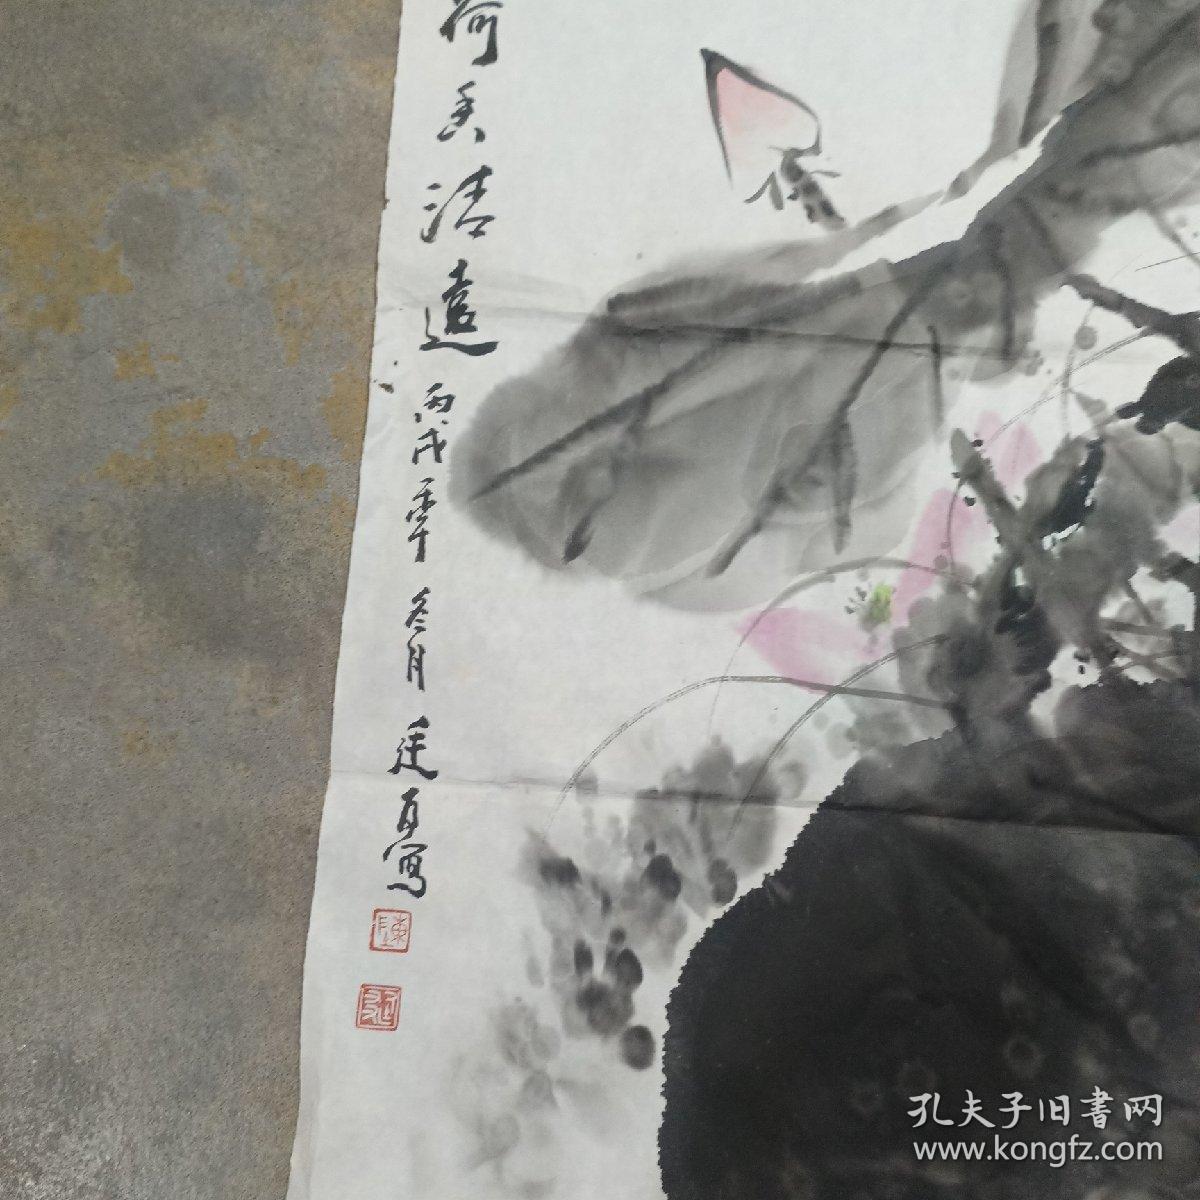 荷香清遠丙戌年冬月廷友寫
陳
孔夫子旧書网
www.kongfz.com